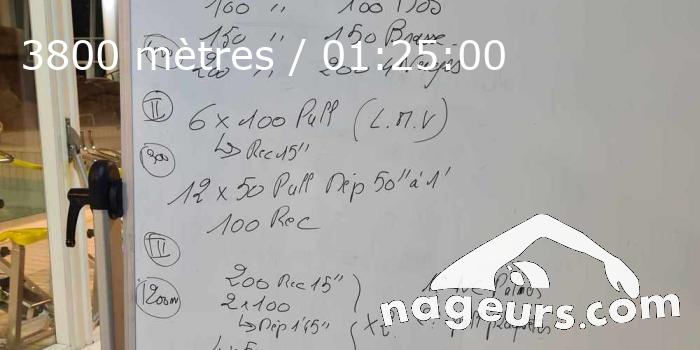 100 " 100 Dos
150 " 150 Brasse
3800 mètres / 01:25:00
200 " 200 4 Nages
II
6 x 100 Pull (L.M.V)
↳ Rec 15"
12 x 50 Pull Dép 50" à 1'
100 Rec
III
1200m
200 Rec 15"
2 x 100
↳ Dép 1'45"
Palmes
nageurs.com